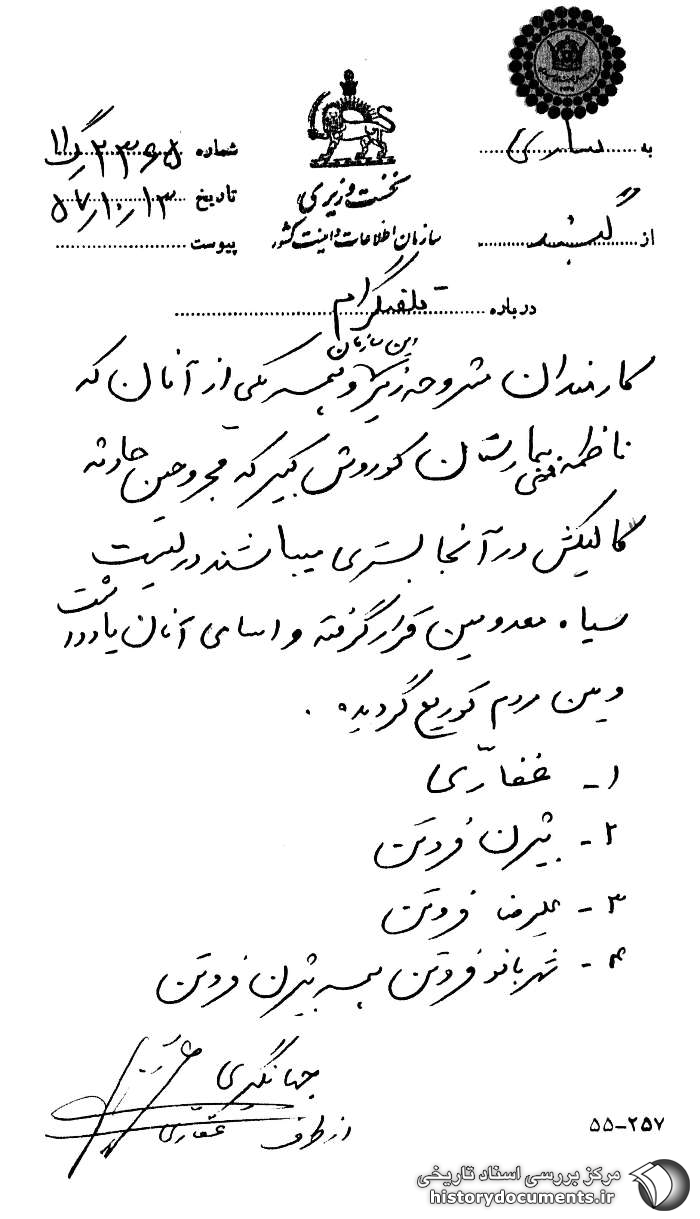 به ساری
از گنبد
شماره ۲۳۶۸ گ ۱۱
تاریخ ۵۷٫۱۰٫۱۳
پیوست
نخست وزیری
سازمان اطلاعات و امنیت کشور
درباره تلفنگرام
کارمندان مشروحه زیر این سازمان و همسر یکی از آنان که
ناظمه فنی بیمارستان کوروش کبیر که مجروحین حادثه
گالیکش در آنجا بستری میباشند در لیست
سیاه معدومین قرار گرفته و اسامی آنان یادداشت
و بین مردم توزیع گردیده .
۱ - غفاری
۲ - بیژن فروتن
۳ - علیرضا فروتن
۴ - شهربانو فروتن همسر بیژن فروتن
جهانگیری
از طرف غفاری
۵۵-۲۵۷
مرکز بررسی اسناد تاریخی
historydocuments.ir